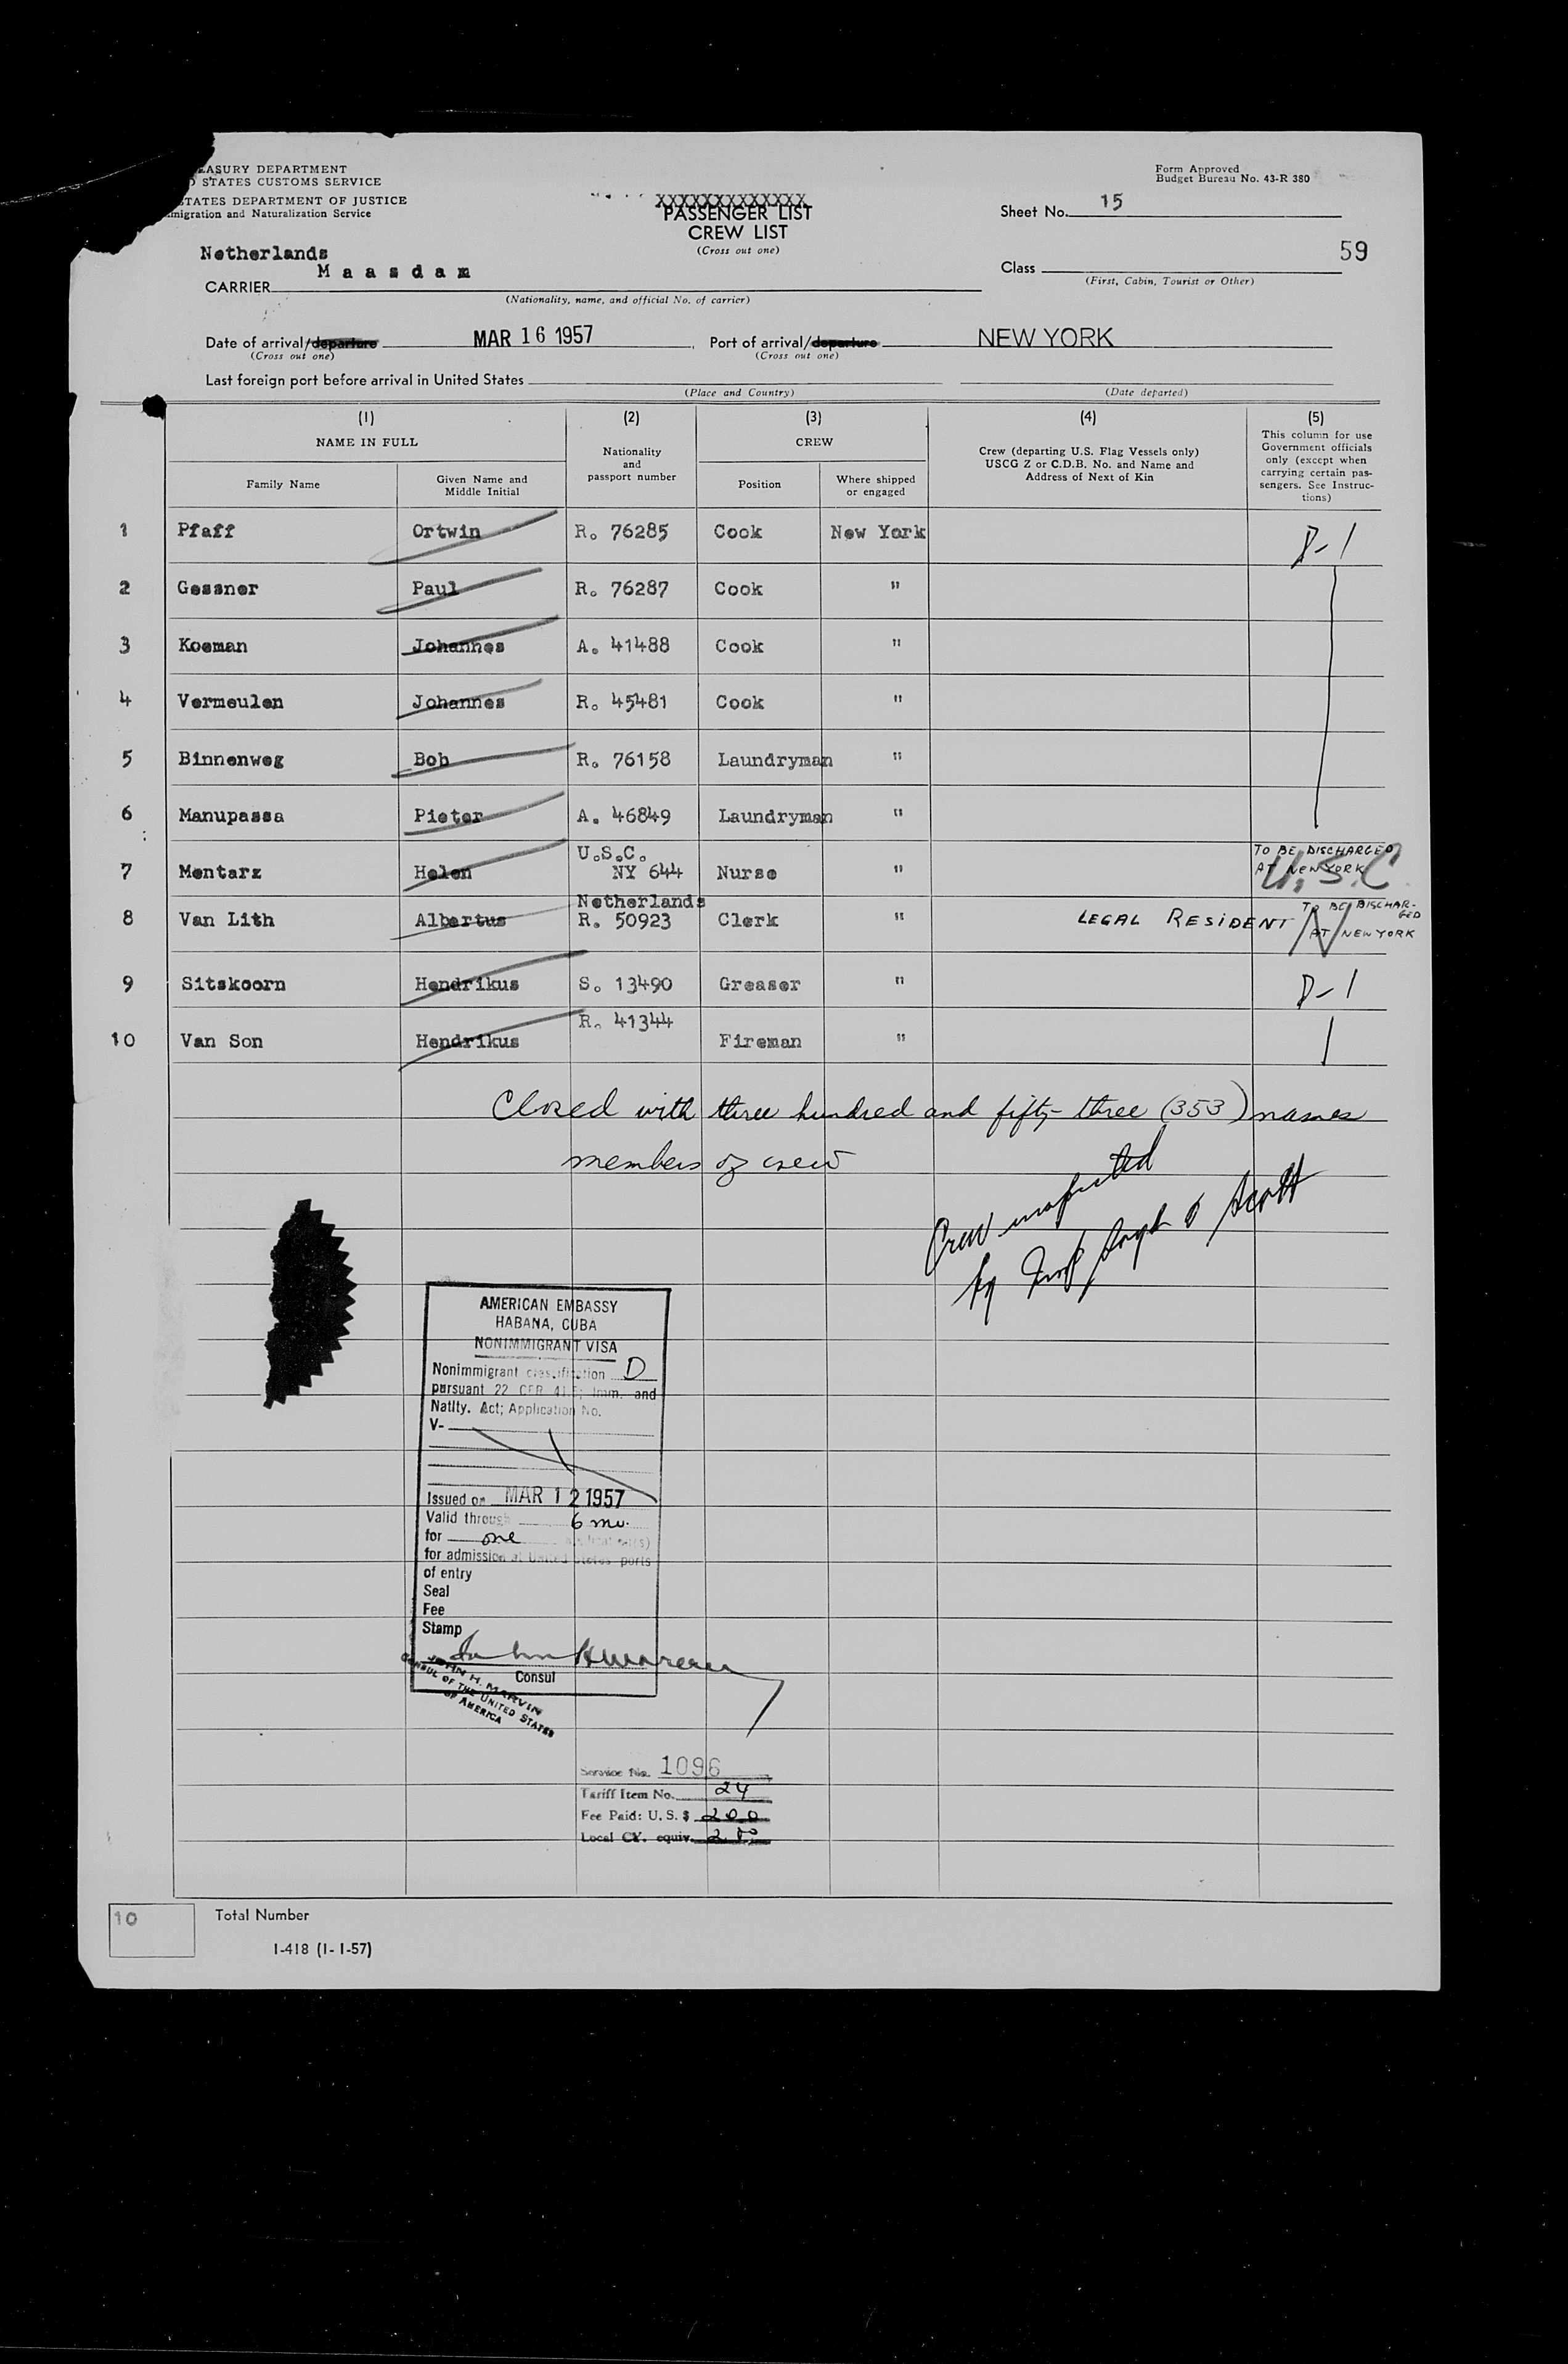 EASURY DEPARTMENT
D STATES CUSTOMS SERVICE
STATES DEPARTMENT OF JUSTICE
migration and Naturalization Service
Form Approved
Budget Bureau No. 43-R 380
XXXXXXXXXXXXX
PASSENGER LIST
CREW LIST
(Cross out one)
Sheet No. 15
59
Netherlands
CARRIER Maasdam
(Nationality, name, and official No. of carrier)
Class
(First, Cabin, Tourist or Other)
Date of arrival/departure MAR 16 1957 Port of arrival/departure NEW YORK
(Cross out one) (Cross out one)
Last foreign port before arrival in United States
(Place and Country) (Date departed)
(1) (2) (3) (4) (5)
NAME IN FULL
Family Name
Given Name and
Middle Initial
Nationality
and
passport number
CREW
Position
Where shipped
or engaged
Crew (departing U.S. Flag Vessels only)
USCG Z or C.D.B. No. and Name and
Address of Next of Kin
This column for use
Government officials
only (except when
carrying certain pas-
sengers. See Instruc-
tions)
1 Pfaff Ortwin R. 76285 Cook New York D-1
2 Gessner Paul R. 76287 Cook "
3 Koeman Johannes A. 41488 Cook "
4 Vermeulen Johannes R. 45481 Cook "
5 Binnenweg Bob R. 76158 Laundryman "
6 Manupassa Pieter A. 46849 Laundryman "
U.S.C.
7 Mentarz Helen NY 644 Nurse "
TO BE DISCHARGED
AT NEW YORK
U.S.C.
Netherlands
8 Van Lith Albertus R. 50923 Clerk " LEGAL RESIDENT
TO BE DISCHAR-
GED
AT NEW YORK
N
9 Sitskoorn Hendrikus S. 13490 Greaser " D-1
R. 41344
10 Van Son Hendrikus Fireman "
Closed with three hundred and fifty-three (353) names
members of crew
Crew inspected
by Scott
AMERICAN EMBASSY
HABANA, CUBA
NONIMMIGRANT VISA
Nonimmigrant classification D
pursuant 22 CFR Imm. and
Natlty. Act; Application No.
V-
Issued on MAR 12 1957
Valid through 6 mo.
for one
for admission at United States ports
of entry
Seal
Fee
Stamp
Consul
JOHN H. MARVIN
CONSUL OF THE UNITED STATES
OF AMERICA
Service No. 1096
Tariff Item No. 24
Fee Paid: U.S. $ 200
Local CY. equiv.
10 Total Number
I-418 (1-1-57)